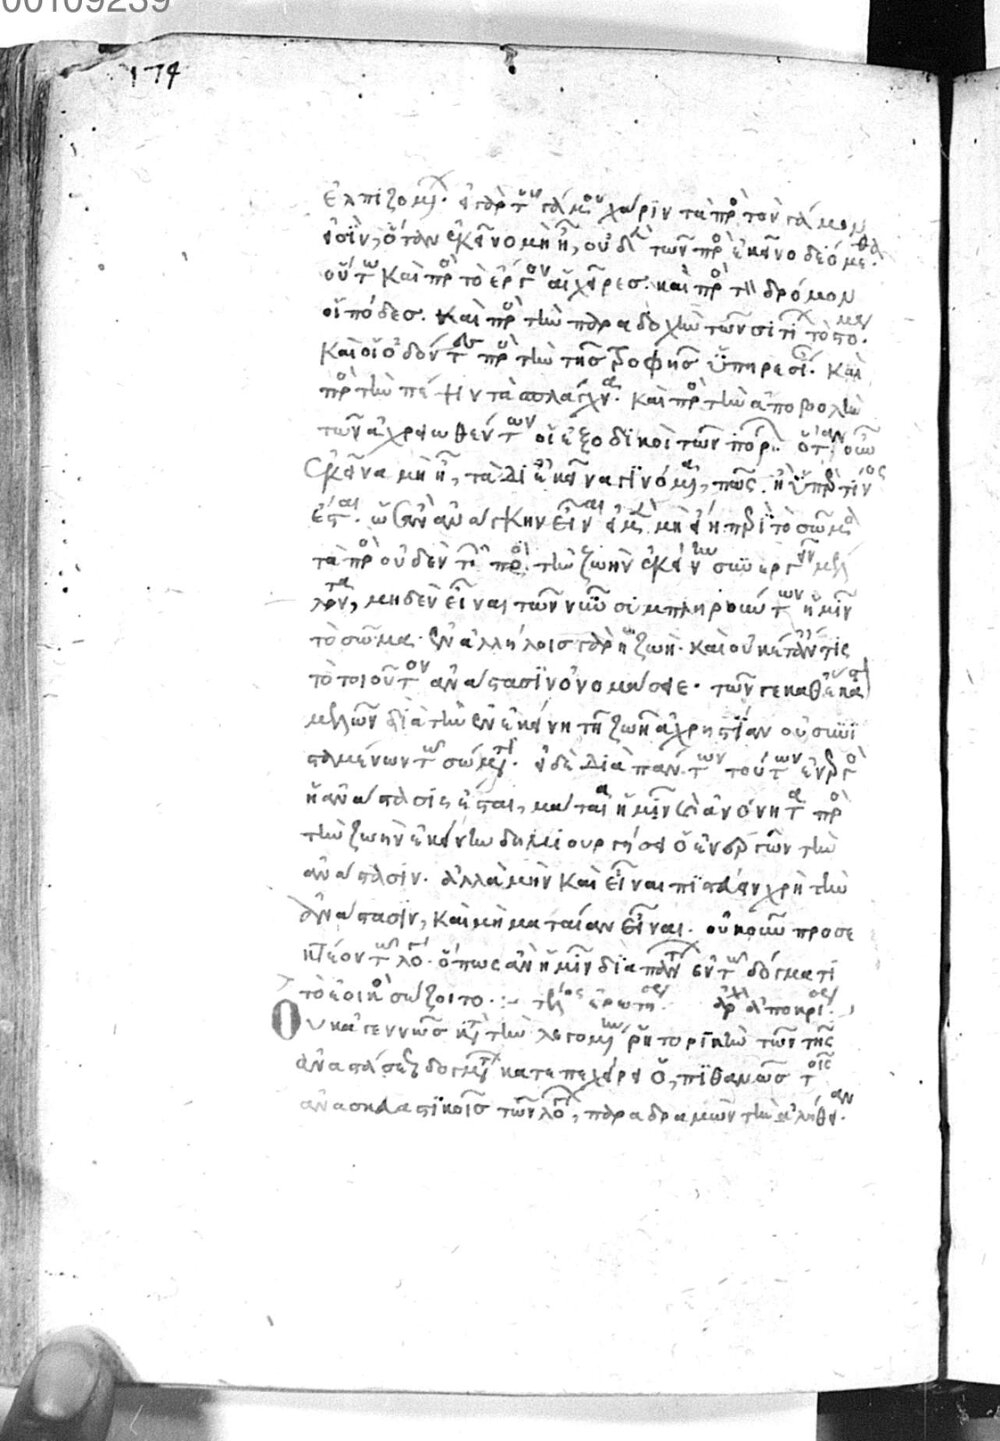 00109239
174
ἐλπίζομεν. εἰ γὰρ τοῦ γάμου χάριν τὰ πρὸ τὸν γάμον
εἰσὶν, ὅταν ἐκεῖνο μὴ ᾖ, οὐδὲ τῶν πρὸ ἐκεῖνο δεόμεθα.
οὕτω καὶ πρὸ τὸ ἔργον αἱ χεῖρες. καὶ πρὸ τὸν δρόμον
οἱ πόδες. καὶ πρὸ τὴν παραδοχὴν τῶν σιτί τὸ στό.
καὶ οἱ ὀδόντ πρὸ τὴν τῆς τροφῆς ὑπηρεσί. καὶ
πρὸ τὴν πέψιν τὰ σπλάγχν. καὶ πρὸ τὴν ἀποβολὴν
τῶν ἀχρειωθέντων οἱ ἐξοδικοὶ τῶν πόρ. ὅταν οὖν
ἐκεῖνα μὴ ᾖ, τὰ δι' ἐκεῖνα γινόμενα, πῶς. ἢ ὑπὲρ τίνος
ἔσται. ὥστε ἂν ἀνάγκην εἶναι εἰ μὲν μὴ εἴη περὶ τὸ σῶμα
τὰ πρὸ οὐδὲν τι πρὸ τὴν ζωὴν ἐκείνην συνεργεῖν μελ
λοντα, μηδὲν εἶναι τῶν νῦν συμπληρούντων ἡμῖν
τὸ σῶμα. ἐν ἄλλοις γὰρ ἡ ζωή. καὶ οὐκέτ' ἄν τις
τὸ τοιοῦτον ἀνάστασιν ὀνομάσειε. τῶν γε καθέκαστ
μελῶν διὰ τὴν ἐν ἐκείνῃ τῇ ζωῇ ἀχρηστίαν οὐ συνι
σταμένων τῶ σώματι. εἰ δὲ διὰ πάντων τούτων ἐνεργὸ
ἡ ἀνάστασις ἔσται, μάταια ἡμῖν καὶ ἀνόνητα πρὸ
τὴν ζωὴν ἐκείνην δημιουργήσει ὁ ἐνεργῶν τὴν
ἀνάστασιν. ἀλλὰ μὴν καὶ εἶναι πιστεύειν χρὴ τὴν
ἀνάστασιν, καὶ μὴ ματαίαν εἶναι. οὐκοῦν προσε
κτέον τῶ λό. ὅπως ἂν ἡμῖν διὰ πάντ ἐν τῶ δόγματι
τὸ εἰκὸ σώζοιτο. :- τῆς ἐρωτή. ἀρχ ἀπόκρι.
Οὐκ ἀγεννῶς κατὰ τὴν λεγομένην ῥητορικὴν τῶν τῆς
ἀναστάσεως δογμάτ κατεπεχείρει ὁ, πιθανῶς τοῖς
ἀνασκευαστικοῖς τῶν λό, παραδραμὼν τὴν ἀλήθειαν.